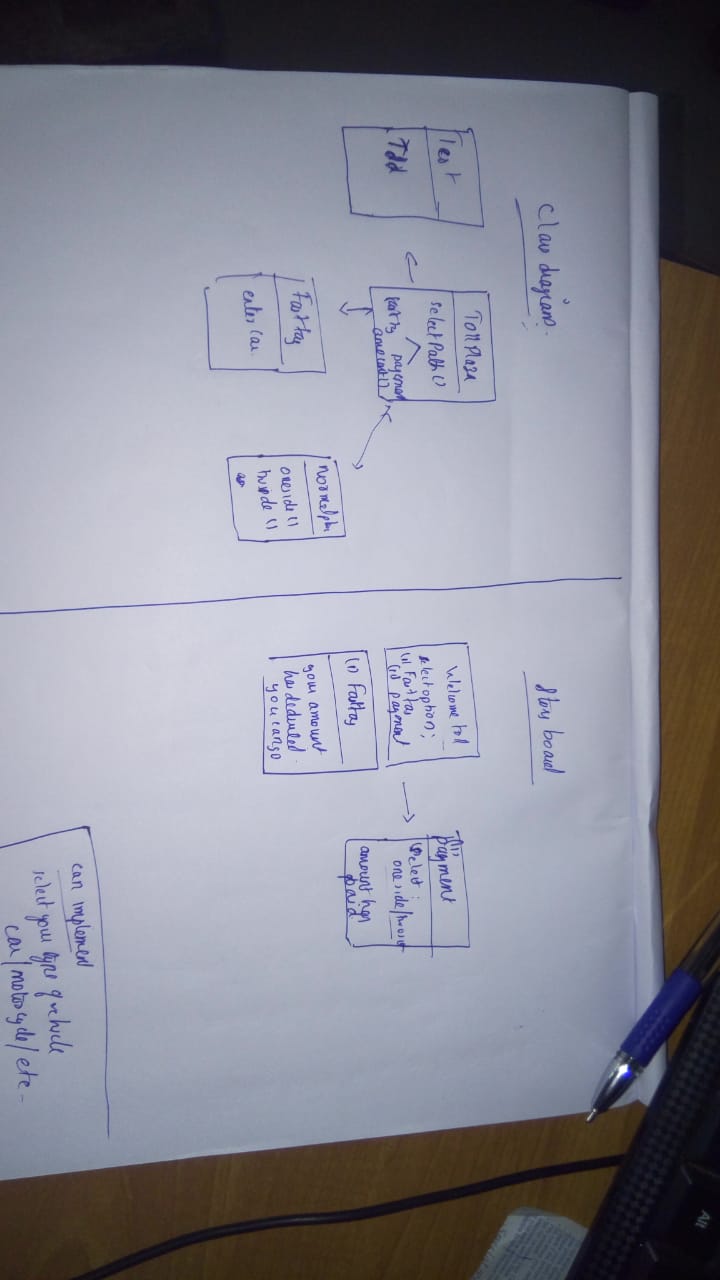 Class diagram:-
Test
Tdd
TollPlaza
selectPath()
payment
amount()
Fasttag
enter Car
oneside()
Story board
Welcome toll
select option;
(i) Fasttag
(ii) payment
(i) Fasttag
your amount
has deducted
you can go
(ii)
payment
select :
oneside/
amount has
paid
can implement
select your type of vehicle
car/motorcycle/etc-
Alt